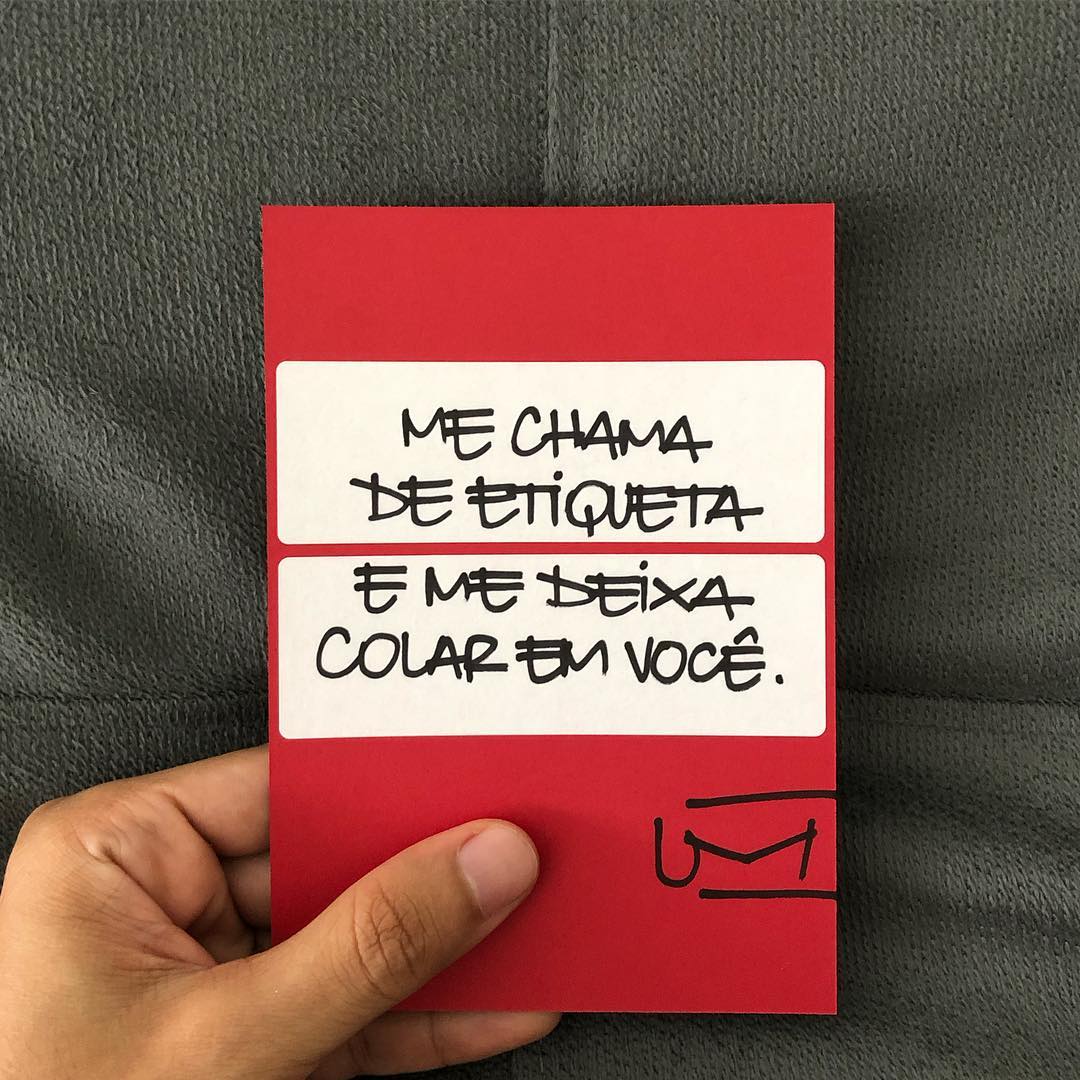 ME CHAMA
DE ETIQUETA
E ME DEIXA
COLAR EM VOCÊ.
UM